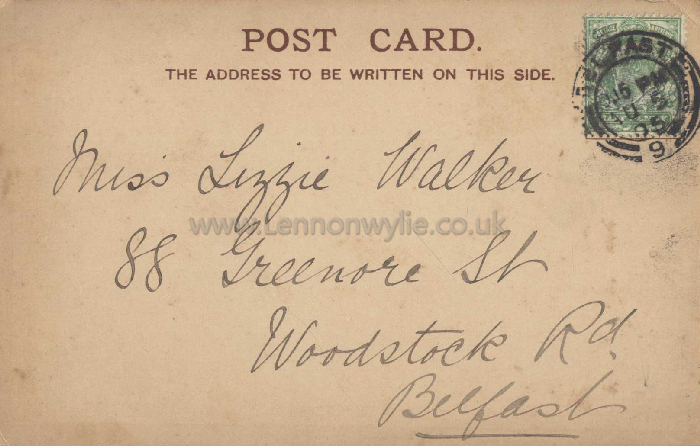 POST CARD.
THE ADDRESS TO BE WRITTEN ON THIS SIDE.
BELFAST
9
Miss Lizzie Walker
www.Lennonwylie.co.uk
88 Greenore St
Woodstock Rd
Belfast